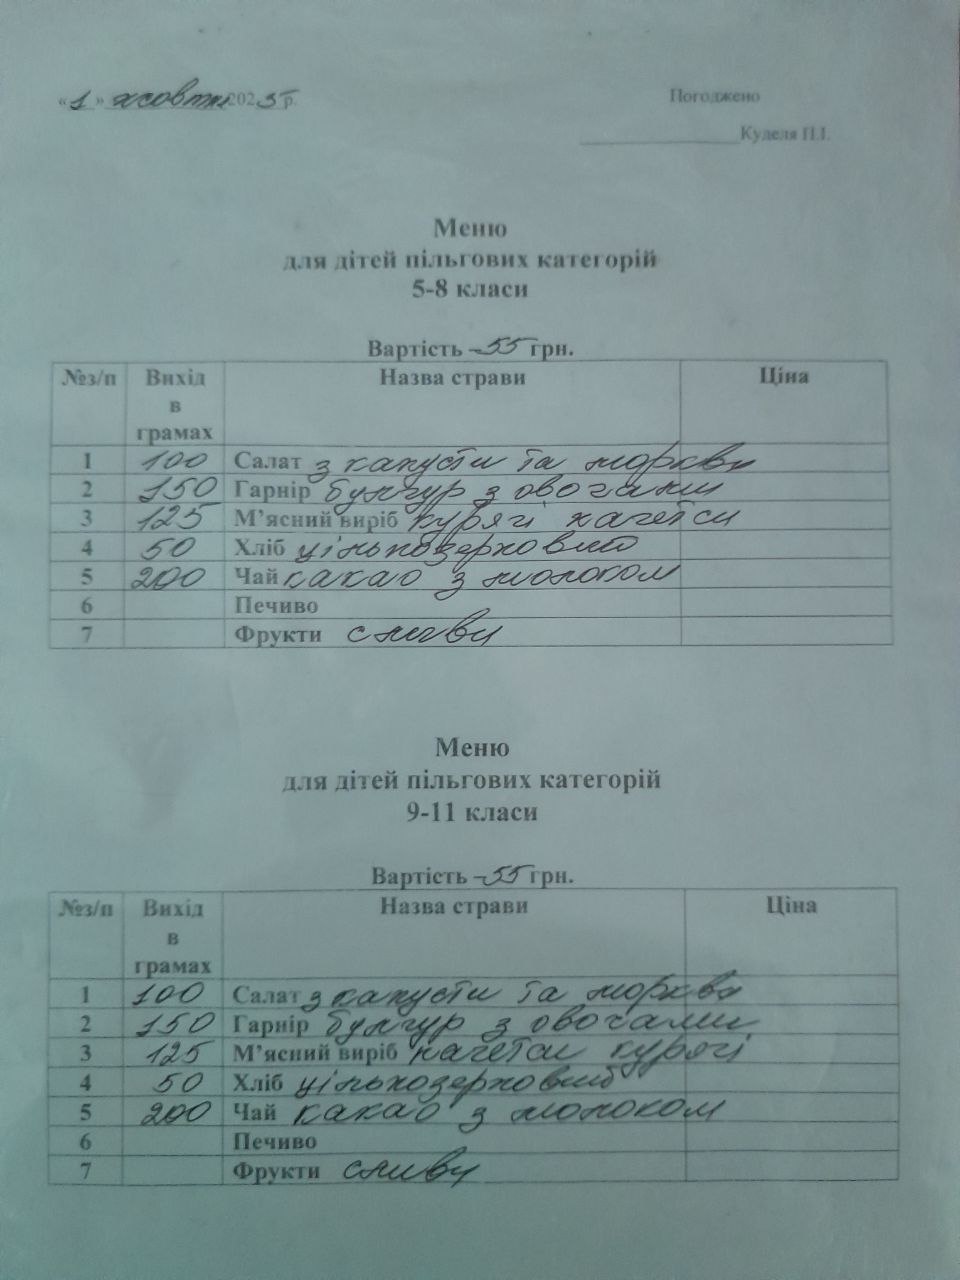 «1» жовтня 2025 р.
Погоджено
Куделя П.І.
Меню
для дітей пільгових категорій
5-8 класи
Вартість – 55 грн.
№з/п Вихід в грамах Назва страви Ціна
1 100 Салат з капусти та моркви
2 150 Гарнір булгур з овочами
3 125 М’ясний виріб курячі нагетси
4 50 Хліб цільнозерновий
5 200 Чай какао з молоком
6 Печиво
7 Фрукти сливи
Меню
для дітей пільгових категорій
9-11 класи
Вартість – 55 грн.
№з/п Вихід в грамах Назва страви Ціна
1 100 Салат з капусти та моркви
2 150 Гарнір булгур з овочами
3 125 М’ясний виріб нагетси курячі
4 50 Хліб цільнозерновий
5 200 Чай какао з молоком
6 Печиво
7 Фрукти сливи